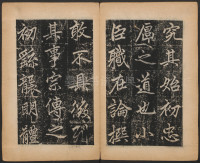 究其始初忠
厲之道也小
臣職在論撰
敢不具後列
其事宗傳之
初繇龍朔體